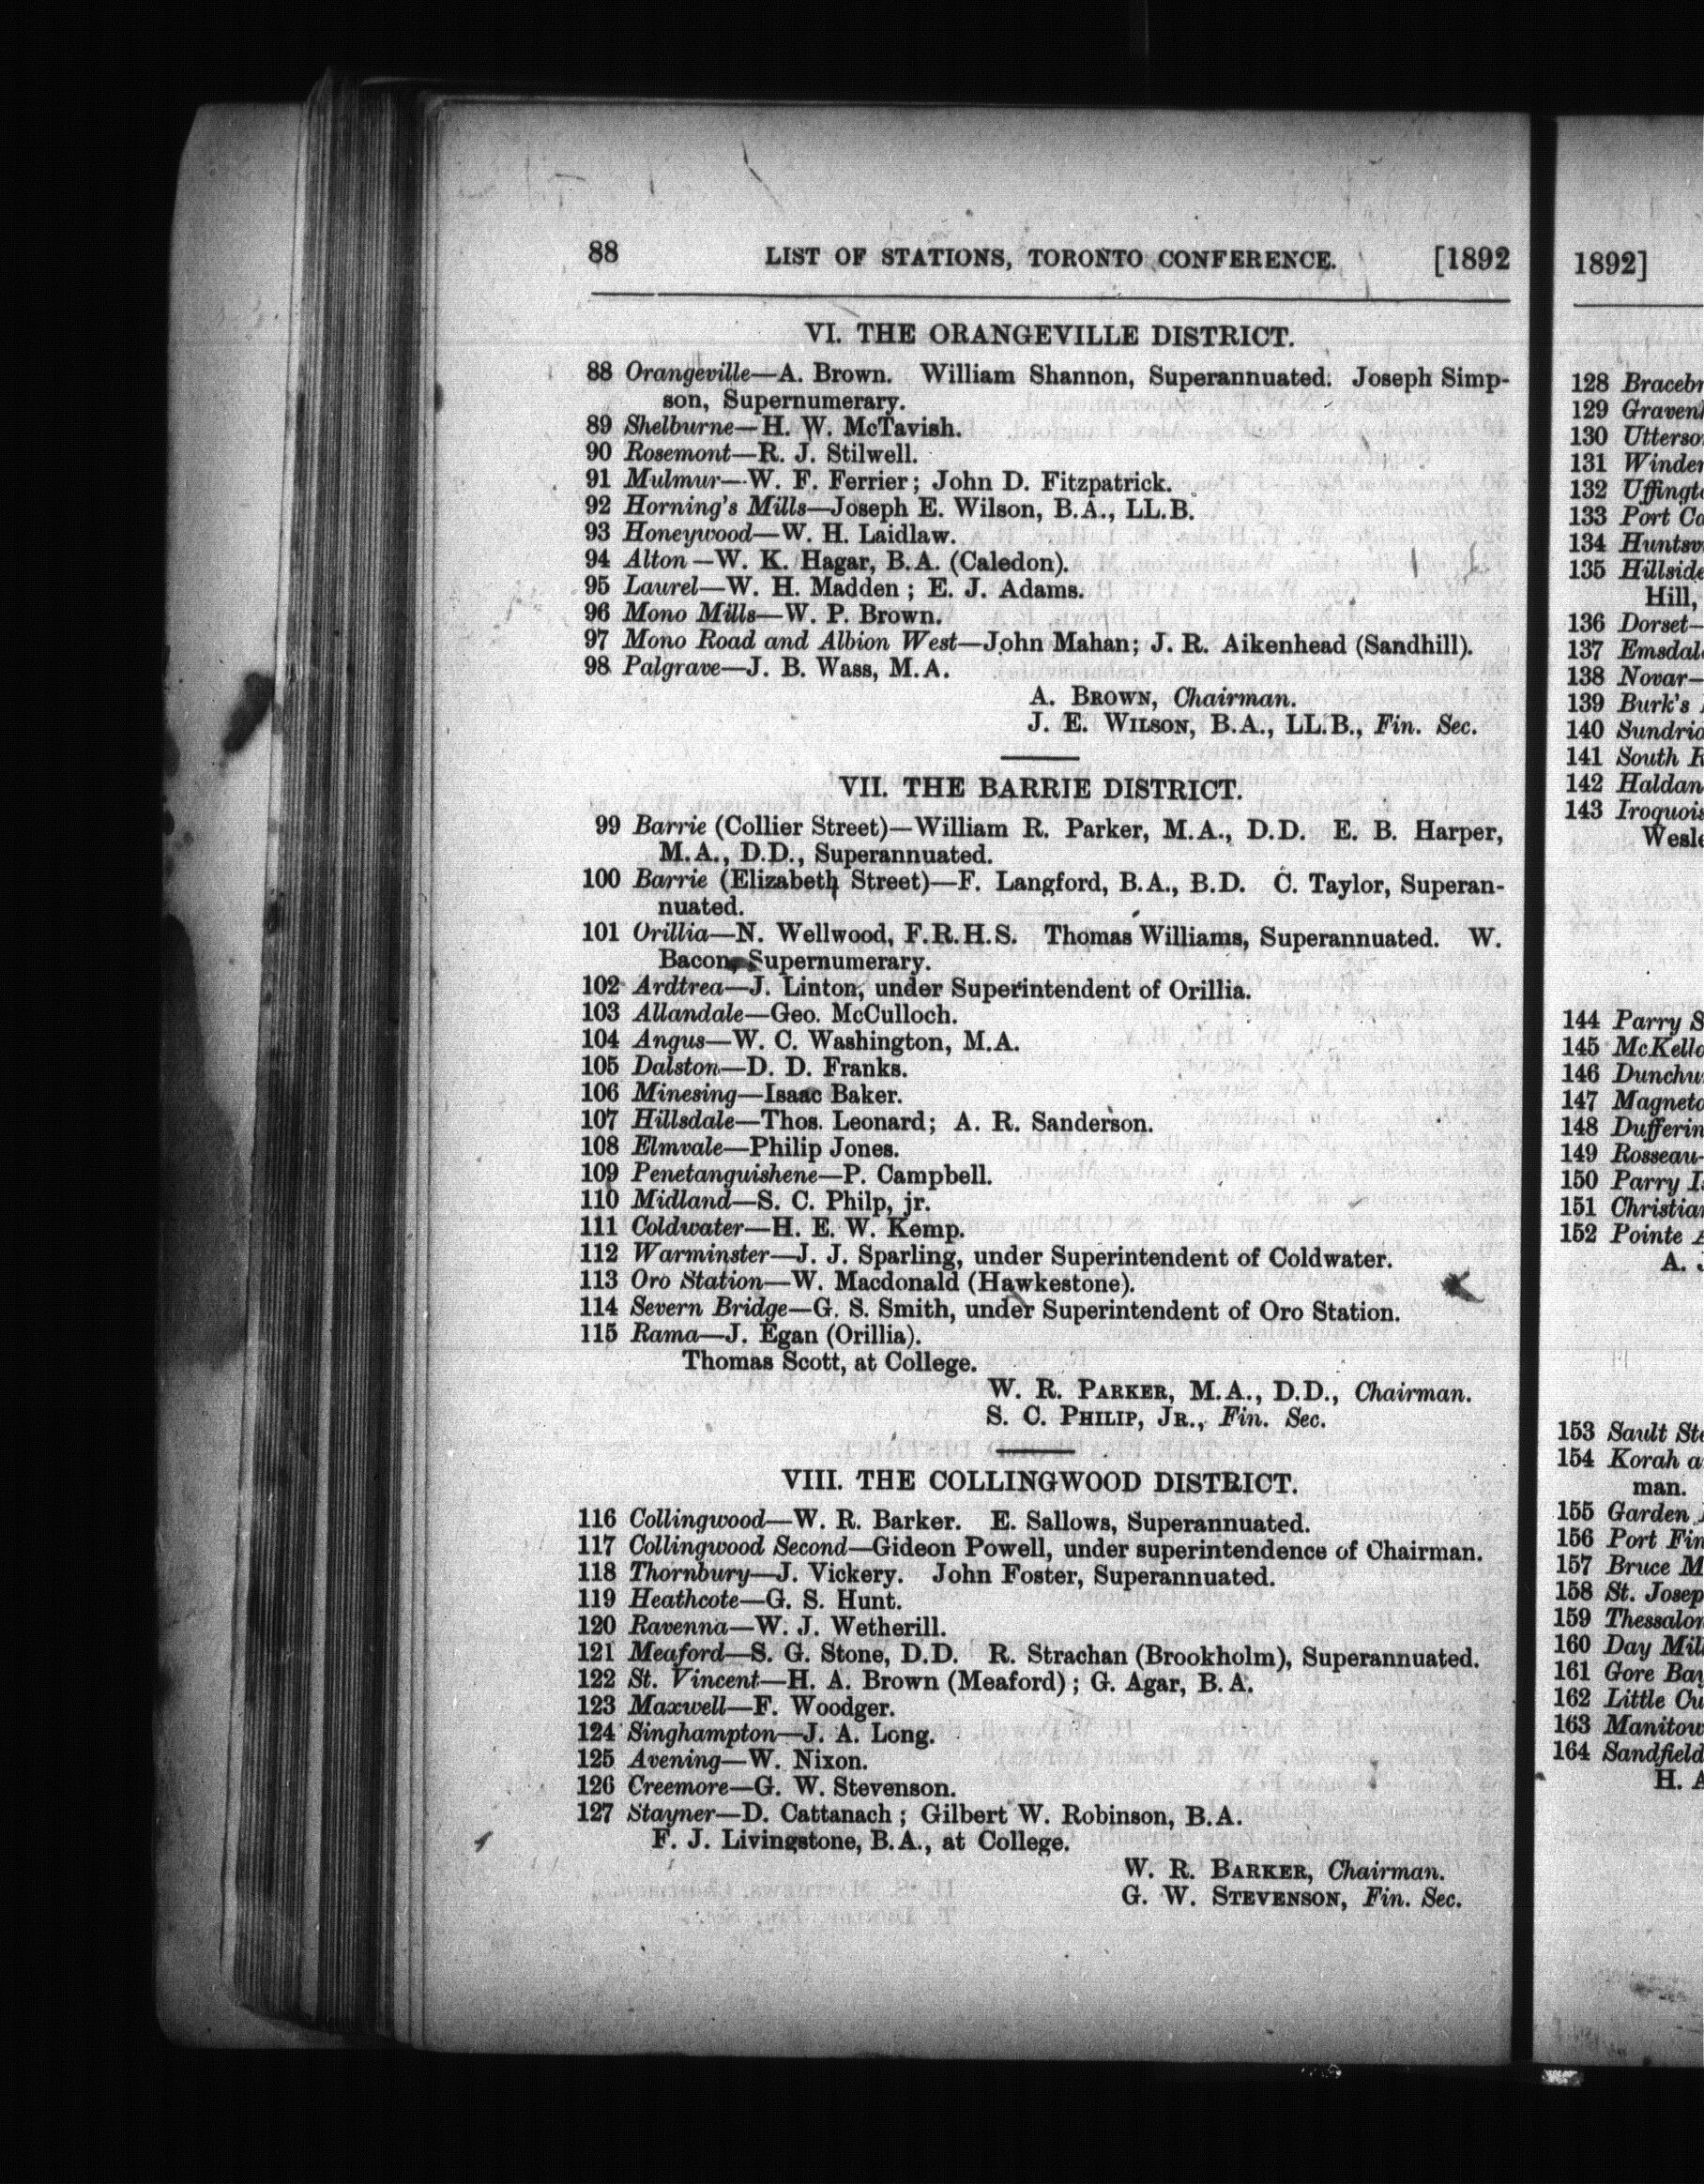 88 LIST OF STATIONS, TORONTO CONFERENCE. [1892
VI. THE ORANGEVILLE DISTRICT.
88 Orangeville—A. Brown. William Shannon, Superannuated. Joseph Simp-
son, Supernumerary.
89 Shelburne—H. W. McTavish.
90 Rosemont—R. J. Stilwell.
91 Mulmur—W. F. Ferrier; John D. Fitzpatrick.
92 Horning's Mills—Joseph E. Wilson, B.A., LL.B.
93 Honeywood—W. H. Laidlaw.
94 Alton—W. K. Hagar, B.A. (Caledon).
95 Laurel—W. H. Madden; E. J. Adams.
96 Mono Mills—W. P. Brown.
97 Mono Road and Albion West—John Mahan; J. R. Aikenhead (Sandhill).
98 Palgrave—J. B. Wass, M.A.
A. BROWN, Chairman.
J. E. WILSON, B.A., LL.B., Fin. Sec.
VII. THE BARRIE DISTRICT.
99 Barrie (Collier Street)—William R. Parker, M.A., D.D. E. B. Harper,
M.A., D.D., Superannuated.
100 Barrie (Elizabeth Street)—F. Langford, B.A., B.D. C. Taylor, Superan-
nuated.
101 Orillia—N. Wellwood, F.R.H.S. Thomas Williams, Superannuated. W.
Bacon, Supernumerary.
102 Ardtrea—J. Linton, under Superintendent of Orillia.
103 Allandale—Geo. McCulloch.
104 Angus—W. C. Washington, M.A.
105 Dalston—D. D. Franks.
106 Minesing—Isaac Baker.
107 Hillsdale—Thos. Leonard; A. R. Sanderson.
108 Elmvale—Philip Jones.
109 Penetanguishene—P. Campbell.
110 Midland—S. C. Philp, jr.
111 Coldwater—H. E. W. Kemp.
112 Warminster—J. J. Sparling, under Superintendent of Coldwater.
113 Oro Station—W. Macdonald (Hawkestone).
114 Severn Bridge—G. S. Smith, under Superintendent of Oro Station.
115 Rama—J. Egan (Orillia).
Thomas Scott, at College.
W. R. PARKER, M.A., D.D., Chairman.
S. C. PHILIP, JR., Fin. Sec.
VIII. THE COLLINGWOOD DISTRICT.
116 Collingwood—W. R. Barker. E. Sallows, Superannuated.
117 Collingwood Second—Gideon Powell, under superintendence of Chairman.
118 Thornbury—J. Vickery. John Foster, Superannuated.
119 Heathcote—G. S. Hunt.
120 Ravenna—W. J. Wetherill.
121 Meaford—S. G. Stone, D.D. R. Strachan (Brookholm), Superannuated.
122 St. Vincent—H. A. Brown (Meaford); G. Agar, B.A.
123 Maxwell—F. Woodger.
124 Singhampton—J. A. Long.
125 Avening—W. Nixon.
126 Creemore—G. W. Stevenson.
127 Stayner—D. Cattanach; Gilbert W. Robinson, B.A.
F. J. Livingstone, B.A., at College.
W. R. BARKER, Chairman.
G. W. STEVENSON, Fin. Sec.
1892]
128
129
130
131
132
133 Port
134
135 Hillside
Hill,
136 Dorset—
137
138 Novar—
139 Burk's
140
141 South
142
143
144 Parry
145
146
147
148
149 Rosseau—
150 Parry
151
152 Pointe
A.
153 Sault
154 Korah
man.
155 Garden
156 Port
157 Bruce
158 St.
159
160 Day
161 Gore
162 Little
163
164
H.